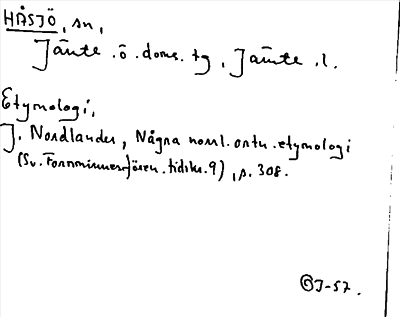 HÅSJÖ, sn,
Jämte. ö. doms. tg, Jämtl. l.
Etymologi,
J. Nordlander, Några norrl. ortn. etymologi
(Sv. Fornminnesfören. tidskr. 9), s. 308.
J-57.